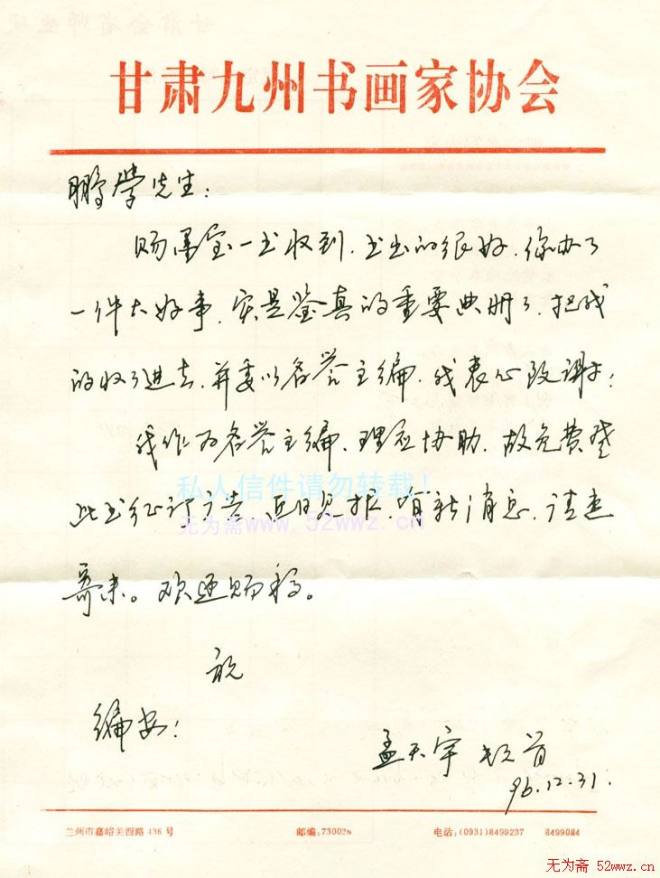 甘肃九州书画家协会
鹏学先生：
赐墨宝一书收到，书出的很好，你办了
一件大好事，实是鉴真的重要典册了，把我
的收了进去，并委以名誉主编，我衷心致谢！
我作为名誉主编，理应协助，故免费登
私人信件请勿转载！
此书征订广告，近日见报，有新消息，请速
无为斋www.52wwz.cn
寄来。欢迎赐稿。
祝
编安！
孟天宇 顿首
96.12.31.
兰州市嘉峪关西路436号 邮编:73002 电话:(0931)8499237 8499084
无为斋 52wwz.cn